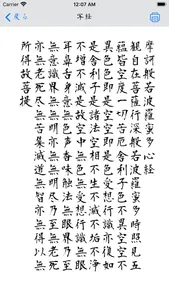 Carrier 12:07 AM
戻る 写経
摩訶般若波羅蜜多心経
観自在菩薩行深般若波羅蜜多時照見五
蘊皆空度一切苦厄舎利子色不異空空不
異色色即是空空即是色受想行識亦復如
是舎利子是諸法空相不生不滅不垢不浄
不増不減是故空中無色無受想行識無眼
耳鼻舌身意無色声香味触法無眼界乃至
無意識界無無明亦無無明尽乃至無老死
亦無老死尽無苦集滅道無智亦無得以無
所得故菩提